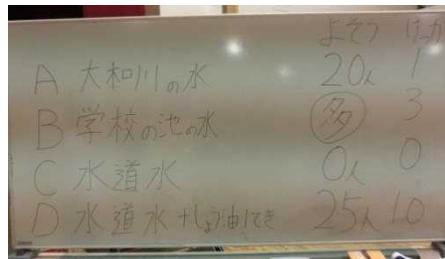 よそう けっか
A 大和川の水 20人 1
B 学校の池の水 多 3
C 水道水 0人 0
D 水道水+しょう油1てき 25人 10